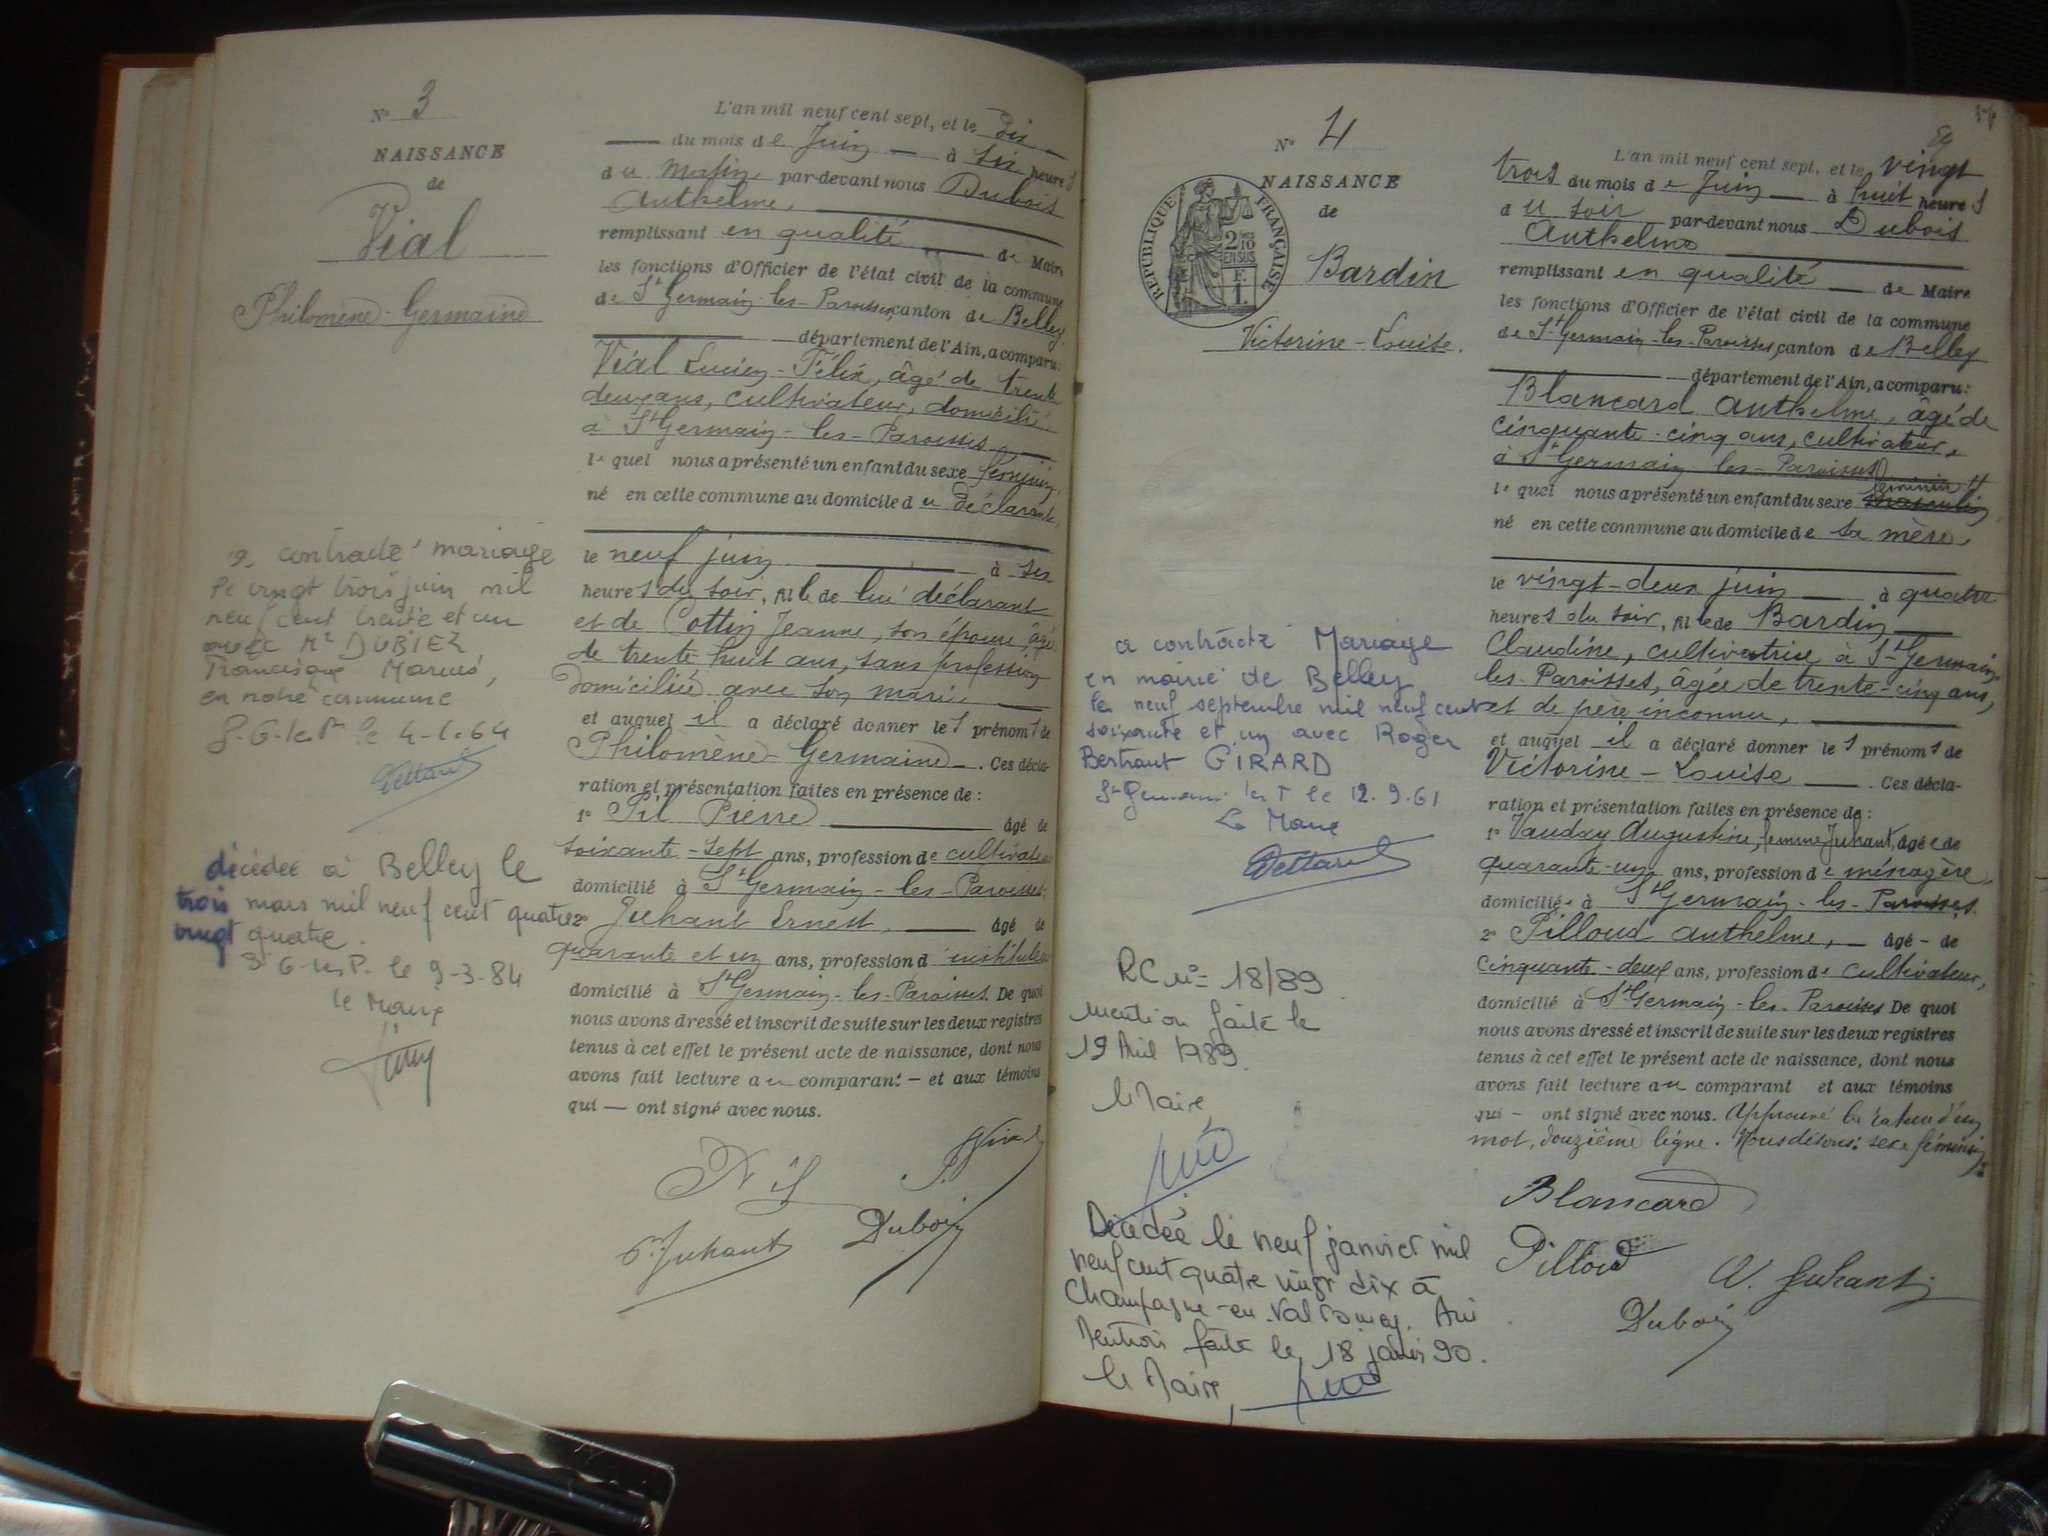 N° 3
NAISSANCE
de
Vial
Philomène-Germaine
a contracté mariage
le vingt trois juin mil
neuf cent trente et un
avec Mr DUBIEZ
Francisque Marius,
en notre commune
S.G.les P. le 4-1-64
décédée à Belley le
trois mars mil neuf cent quatre
vingt quatre.
St G-les P. le 9-3-84
le Maire
L'an mil neuf cent sept, et le dix
du mois de Juin à six heures
du matin, par-devant nous Dubois
Anthelme,
remplissant en qualité de Maire
les fonctions d'Officier de l'état civil de la commune
de St Germain-les-Paroisses, canton de Belley
département de l'Ain, a comparu:
Vial Lucien-Félix, âgé de trente
deux ans, cultivateur, domicilié
à St Germain-les-Paroisses
lequel nous a présenté un enfant du sexe féminin,
né en cette commune au domicile du déclarant,
le neuf juin à six
heures du soir, fille de lui déclarant
et de Cottin Jeanne, son épouse, âgée
de trente huit ans, sans profession
domiciliée avec son mari
et auquel il a déclaré donner les prénoms de
Philomène-Germaine. Ces décla-
ration et présentation faites en présence de:
1° Pil Pierre âgé de
soixante-sept ans, profession de cultivateur
domicilié à St Germain-les-Paroisses,
2° Juhant Ernest, âgé de
quarante et un ans, profession d'instituteur
domicilié à St Germain-les-Paroisses. De quoi
nous avons dressé et inscrit de suite sur les deux registres
tenus à cet effet le présent acte de naissance, dont nous
avons fait lecture au comparant - et aux témoins
qui — ont signé avec nous.
Vial
E. Juhant Dubois
N° 4
NAISSANCE
de
RÉPUBLIQUE FRANÇAISE
2 10 EN SUS
F. 1.
Bardin
Victorine-Louise.
a contracté Mariage
en mairie de Belley
le neuf septembre mil neuf cent
soixante et un avec Roger
Bertrant GIRARD
St Germain les P le 12.9.61
Le Maire
RC n° 18/89
mention faite le
19 Avril 1989.
le Maire,
Décédée le neuf janvier mil
neuf cent quatre vingt dix à
Champagne-en-Valromey. Ain
Mention faite le 18 janvier 90.
le Maire,
L'an mil neuf cent sept, et le vingt
trois du mois de Juin à huit heures
du soir par-devant nous Dubois
Anthelme
remplissant en qualité de Maire
les fonctions d'Officier de l'état civil de la commune
de St Germain-les-Paroisses, canton de Belley
département de l'Ain, a comparu:
Blancard Anthelme, âgé de
cinquante-cinq ans, cultivateur,
à St Germain-les-Paroisses
féminin
lequel nous a présenté un enfant du sexe masculin
né en cette commune au domicile de sa mère,
le vingt-deux juin à quatre
heures du soir, fille de Bardin
Claudine, cultivatrice à St Germain-
les-Paroisses, âgée de trente-cinq ans,
et de père inconnu,
et auquel il a déclaré donner les prénoms de
Victorine-Louise. Ces décla-
ration et présentation faites en présence de:
1° Vauday Augustine, femme Juhant, âgée de
quarante-un ans, profession de ménagère,
domiciliée à St Germain-les-Paroisses
2° Pilloud Anthelme, âgé - de
cinquante-deux ans, profession de cultivateur,
domicilié à St Germain-les-Paroisses De quoi
nous avons dressé et inscrit de suite sur les deux registres
tenus à cet effet le présent acte de naissance, dont nous
avons fait lecture au comparant et aux témoins
qui - ont signé avec nous. Approuvé la rature d'un
mot, douzième ligne. Nous disons: sexe féminin.
Blancard
Pilloud A. Juhant
Dubois